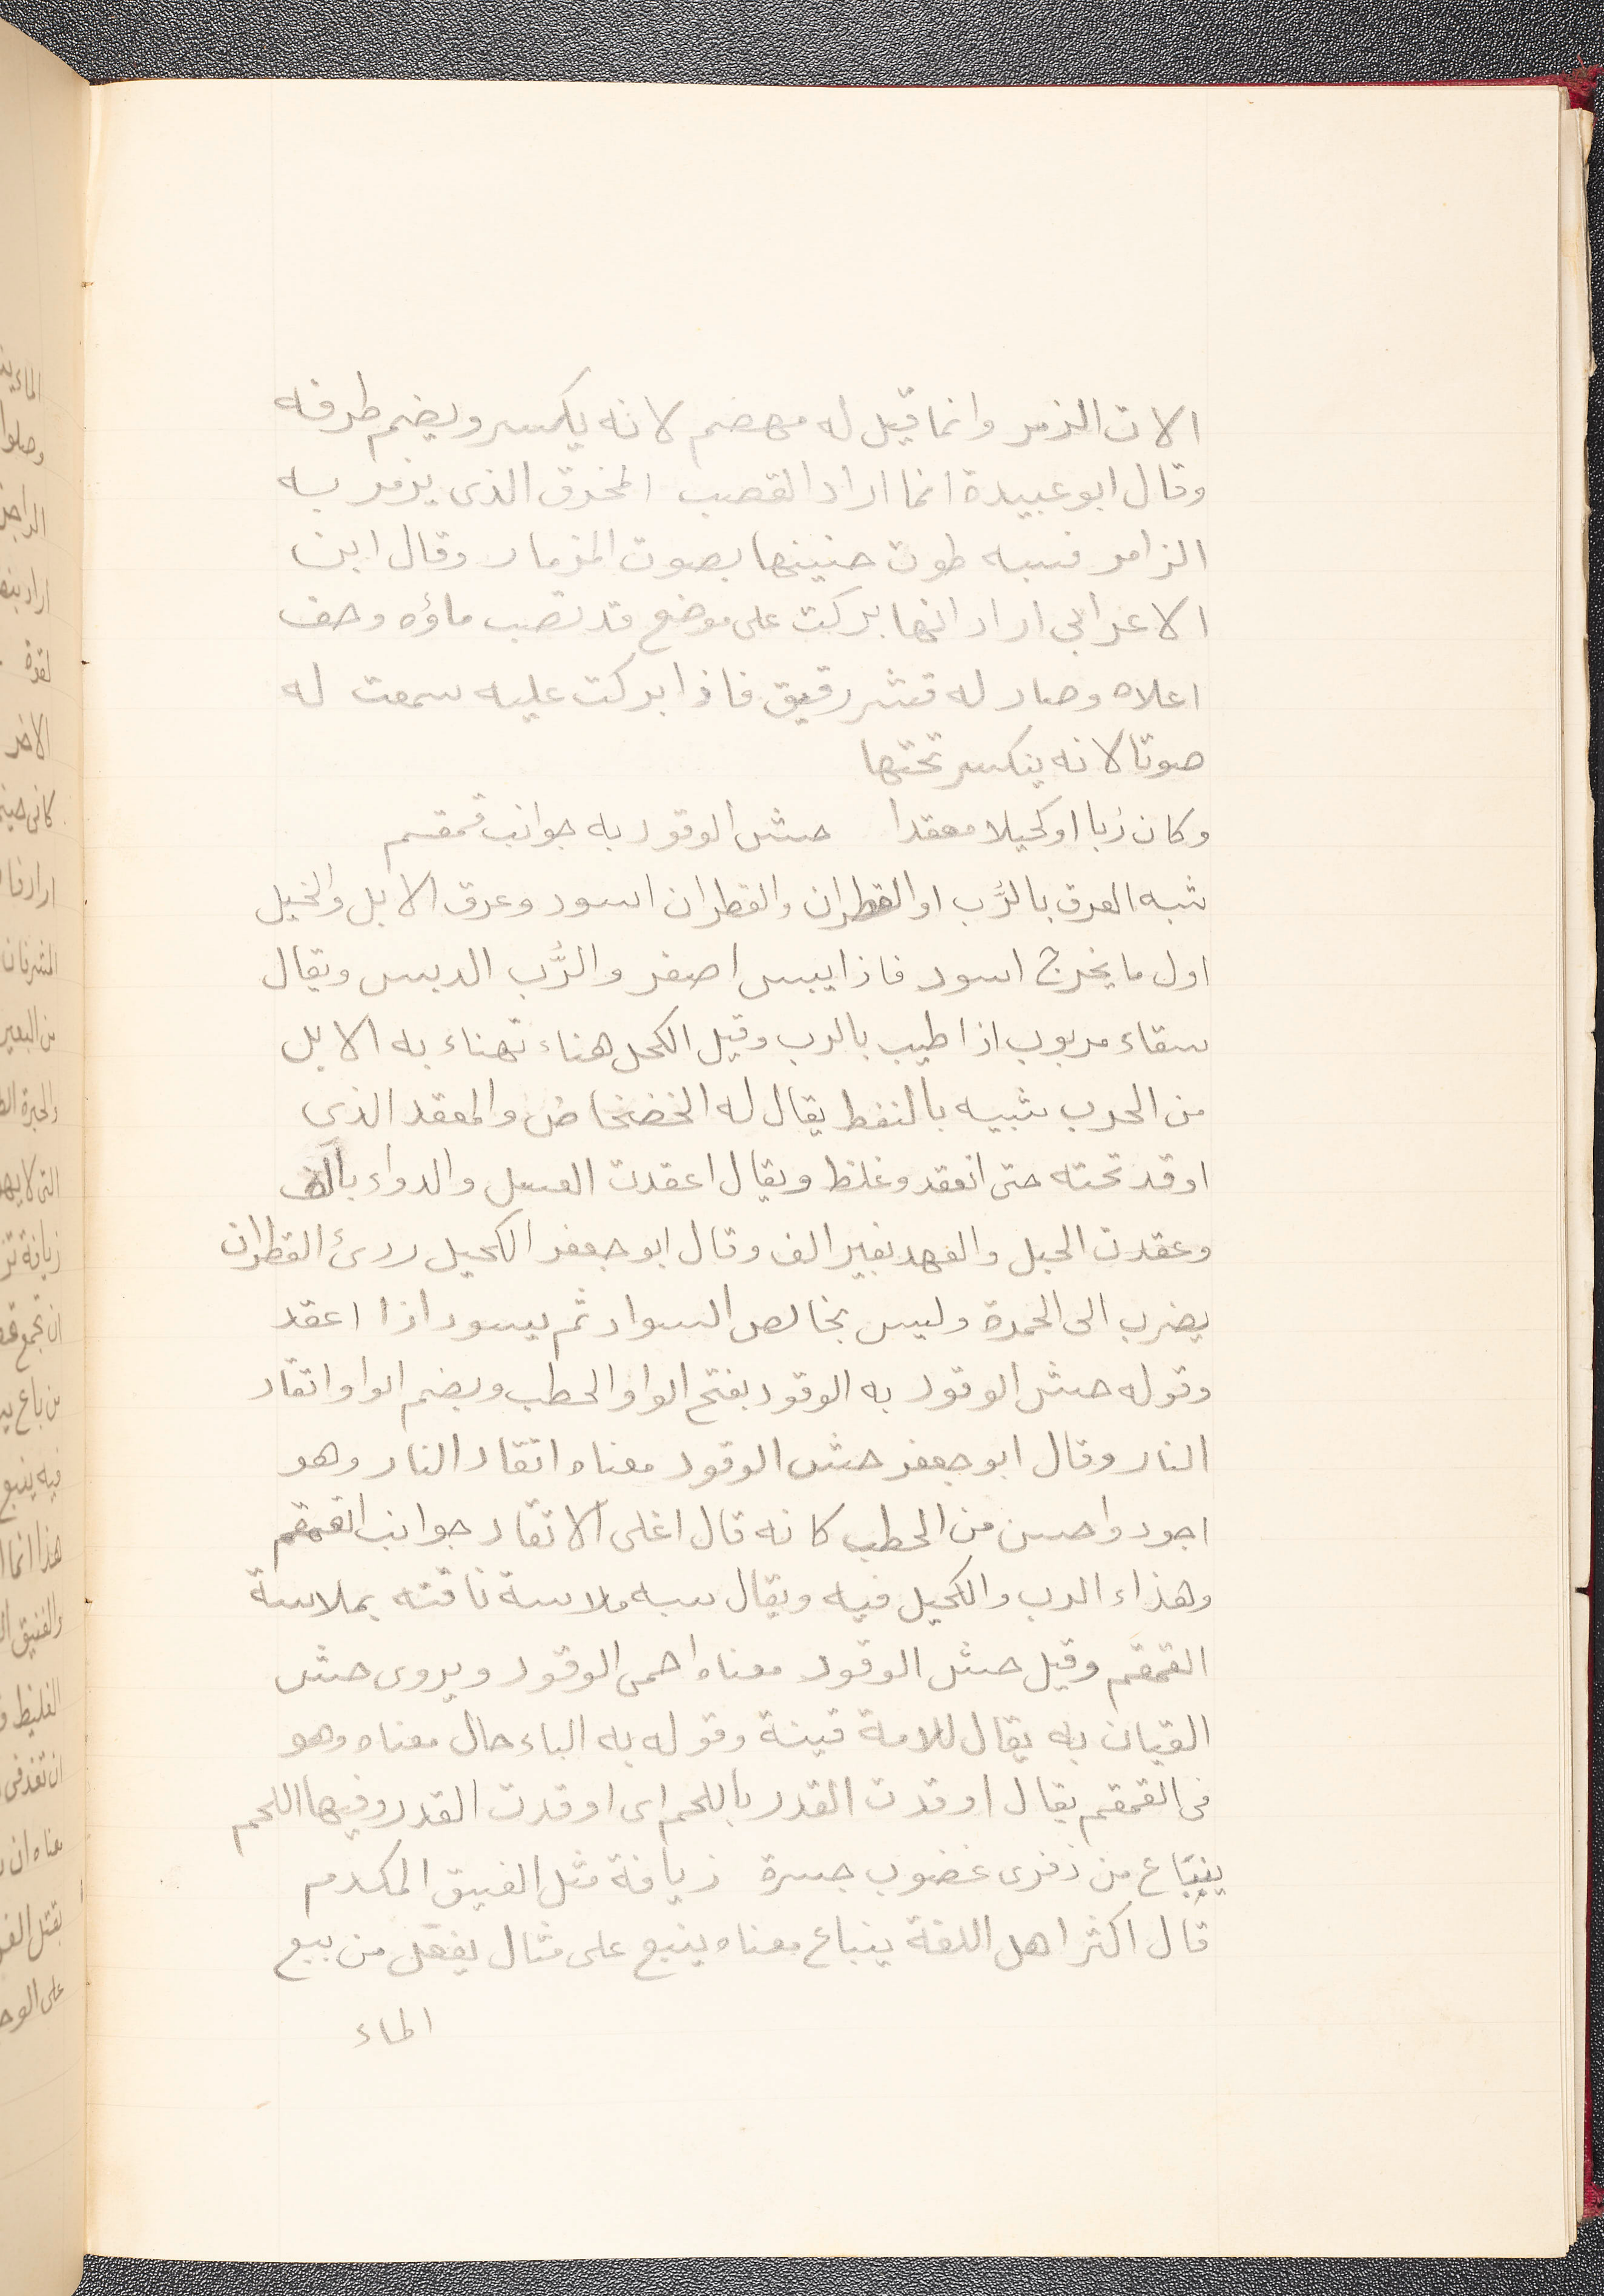 الات الزمر وانما قيل له مهضم لانه يكسر ويضم طرفه
وقال ابو عبيدة انما اراد القصب المخرق الذى يزمر به
الزامر فسبه طوت حنينها بصوت المزمار وقال ابن
الاعرابى اراد انها بركت على موضع قد نضب ماؤه وجف
اعلاه وصار له قشر رقيق فاذا بركت عليه سمعت له
صوتا لانه ينكسر تحتها
وكان ربا او كحيلا معقدا حش الوقود به جوانب قمقم
شبه العرق بالرُّب او القطران والقطران اسود وعرق الابل والخيل
اول ما يخرج اسود فاذا يبس اصفر والرُّب الدبس ويقال
سقاء مربوب اذا طيب بالرب وقيل الكحل هناء تهناء به الابل
من الجرب شبيه بالنفط يقال له الخضخاض والمعقد الذى
اوقد تحته حتى انعقد وغلظ ويقال اعقدت العسل والدواء بالف
وعقدت الحبل والعهد بغير الف وقال ابو جعفر الكحيل ردئ القطران
يضرب الى الحمرة وليس بخالص السواد ثم يسود اذا اعقد
وقوله حش الوقود به الوقود بفتح الواو الحطب وبضم الواو اتقاد
النار وقال ابو جعفر حش الوقود معناه اتقاد النار وهو
اجود واحسن من الحطب كانه قال اغلى الاتقاد جوانب القمقم
وهذاء الرب والكحيل فيه ويقال سبه ملاسة ناقته بملاسة
القمقم وقيل حش الوقود معناه احمى الوقود ويروى حش
القيان به يقال للامة قينة وقوله به الباء حال معناه وهو
فى القمقم يقال اوقدت القدر باللحم اى اوقدت القدر وفيها اللحم
ينباع من ذفرى غضوب جسرة زيافة مثل الفنيق المكدم
قال اكثر اهل اللغة ينباع معناه ينبع على مثال يفعل من ببع
الماء